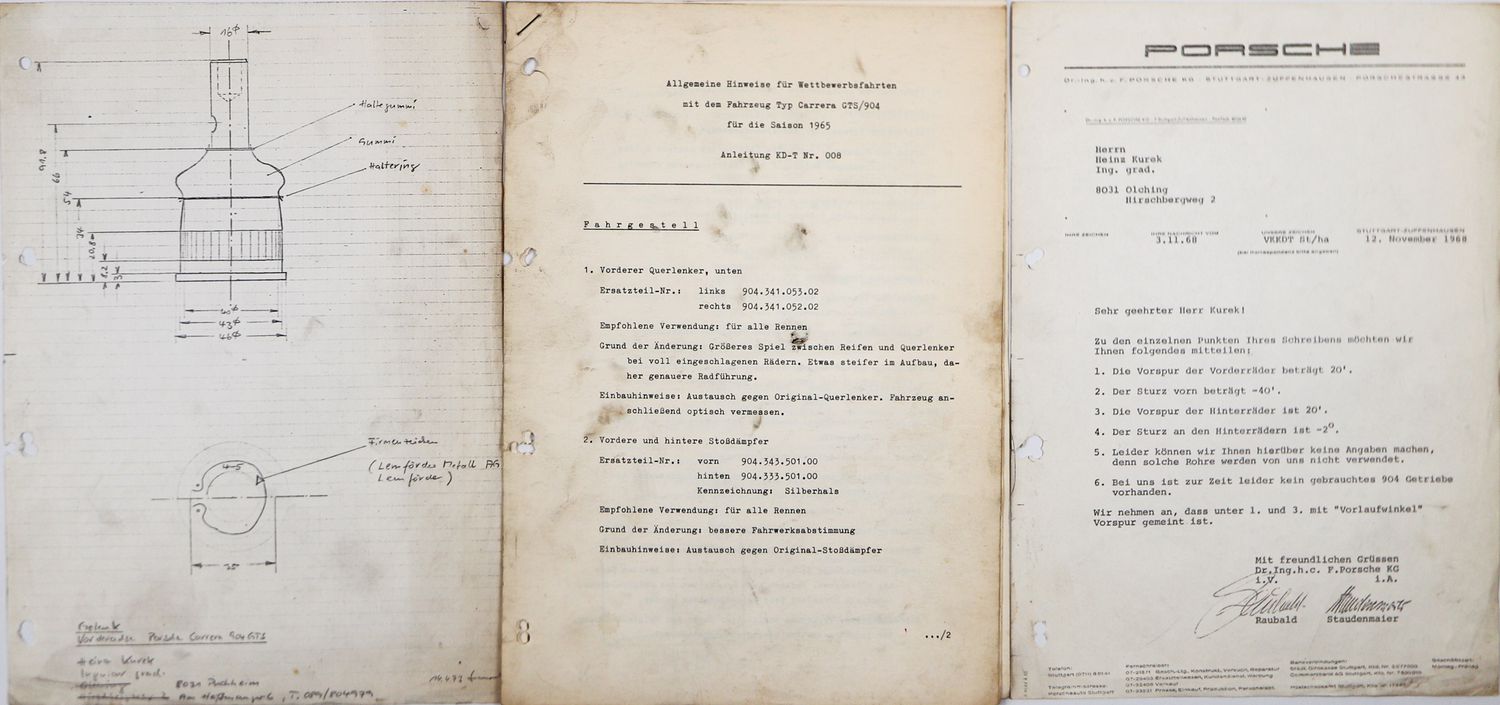 16⌀
Haltegummi
Gummi
Haltering
91,8
66
54
34
20,8
8,2
3
40⌀
43⌀
46⌀
Firmenzeichen
(Lemförder Metall AG
Lemförder)
4-5
25
Gelenk
Vorderachse Porsche Carrera 904 GTS
Heinz Kurek
Ingenieur grad.
8031 Puchheim
T. 089/804979
Allgemeine Hinweise für Wettbewerbsfahrten
mit dem Fahrzeug Typ Carrera GTS/904
für die Saison 1965
Anleitung KD-T Nr. 008
Fahrgestell
1. Vorderer Querlenker, unten
Ersatzteil-Nr.: links 904.341.053.02
rechts 904.341.052.02
Empfohlene Verwendung: für alle Rennen
Grund der Änderung: Größeres Spiel zwischen Reifen und Querlenker
bei voll eingeschlagenen Rädern. Etwas steifer im Aufbau, da-
her genauere Radführung.
Einbauhinweise: Austausch gegen Original-Querlenker. Fahrzeug an-
schließend optisch vermessen.
2. Vordere und hintere Stoßdämpfer
Ersatzteil-Nr.: vorn 904.343.501.00
hinten 904.333.501.00
Kennzeichnung: Silberhals
Empfohlene Verwendung: für alle Rennen
Grund der Änderung: bessere Fahrwerksabstimmung
Einbauhinweise: Austausch gegen Original-Stoßdämpfer
.../2
PORSCHE
Dr.-Ing. h. c. F. PORSCHE KG · STUTTGART-ZUFFENHAUSEN · PORSCHESTRASSE
Herrn
Heinz Kurek
Ing. grad.
8031 Olching
Hirschbergweg 2
IHRE ZEICHEN IHRE NACHRICHT VOM UNSERE ZEICHEN STUTTGART-ZUFFENHAUSEN
3.11.68 VKKDT St/ha 12. November 1968
(bei Korrespondenz bitte angeben)
Sehr geehrter Herr Kurek!
Zu den einzelnen Punkten Ihres Schreibens möchten wir
Ihnen folgendes mitteilen:
1. Die Vorspur der Vorderräder beträgt 20'.
2. Der Sturz vorn beträgt -40'.
3. Die Vorspur der Hinterräder ist 20'.
4. Der Sturz an den Hinterrädern ist -2°.
5. Leider können wir Ihnen hierüber keine Angaben machen,
denn solche Rohre werden von uns nicht verwendet.
6. Bei uns ist zur Zeit leider kein gebrauchtes 904 Getriebe
vorhanden.
Wir nehmen an, dass unter 1. und 3. mit "Vorlaufwinkel"
Vorspur gemeint ist.
Mit freundlichen Grüssen
Dr.Ing.h.c. F.Porsche KG
i.V. i.A.
Raubald Staudenmaier
Telefon:
Stuttgart (0711)
Telegrammadresse:
Porscheauto Stuttgart
Fernschreiber:
Gesch.-Ltg., Konstrukt., Versuch, Reparatur
Ersatzteilwesen, Kundendienst, Werbung
Verkauf
Presse, Einkauf, Produktion, Personalabt.
Bankverbindungen:
Geschäftszeit:
Montag - Freitag